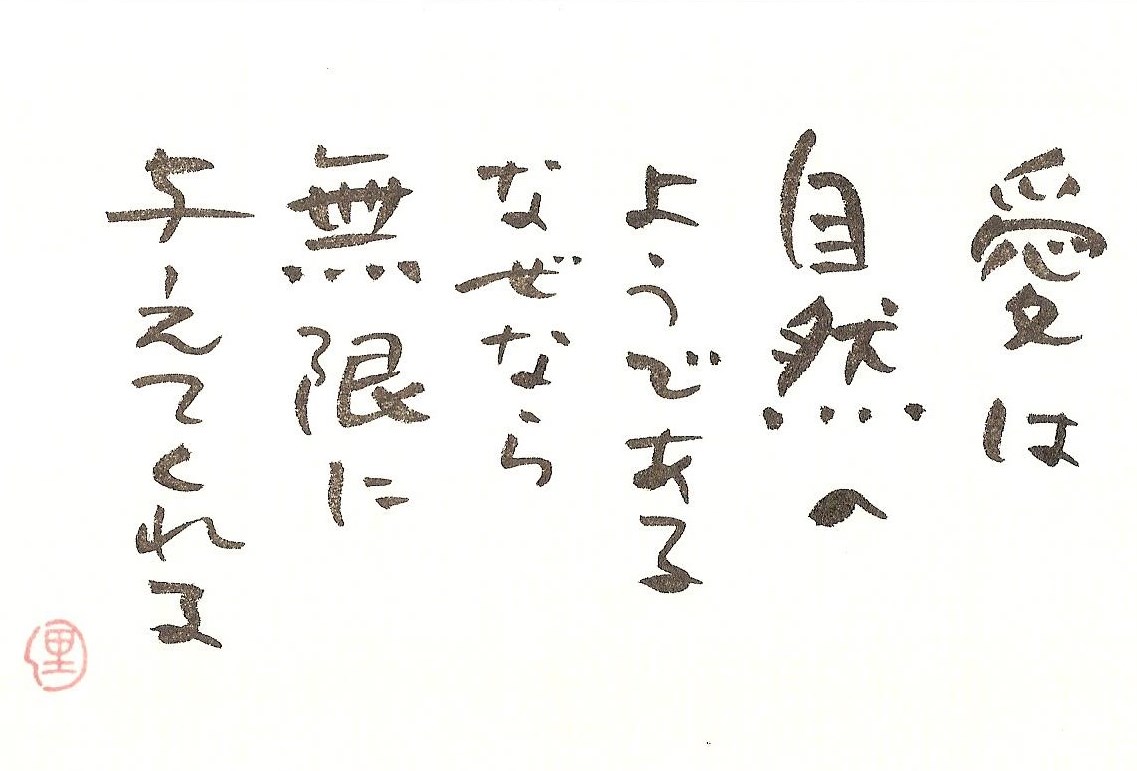 愛は
自然の
ようである
なぜなら
無限に
与えてくれる